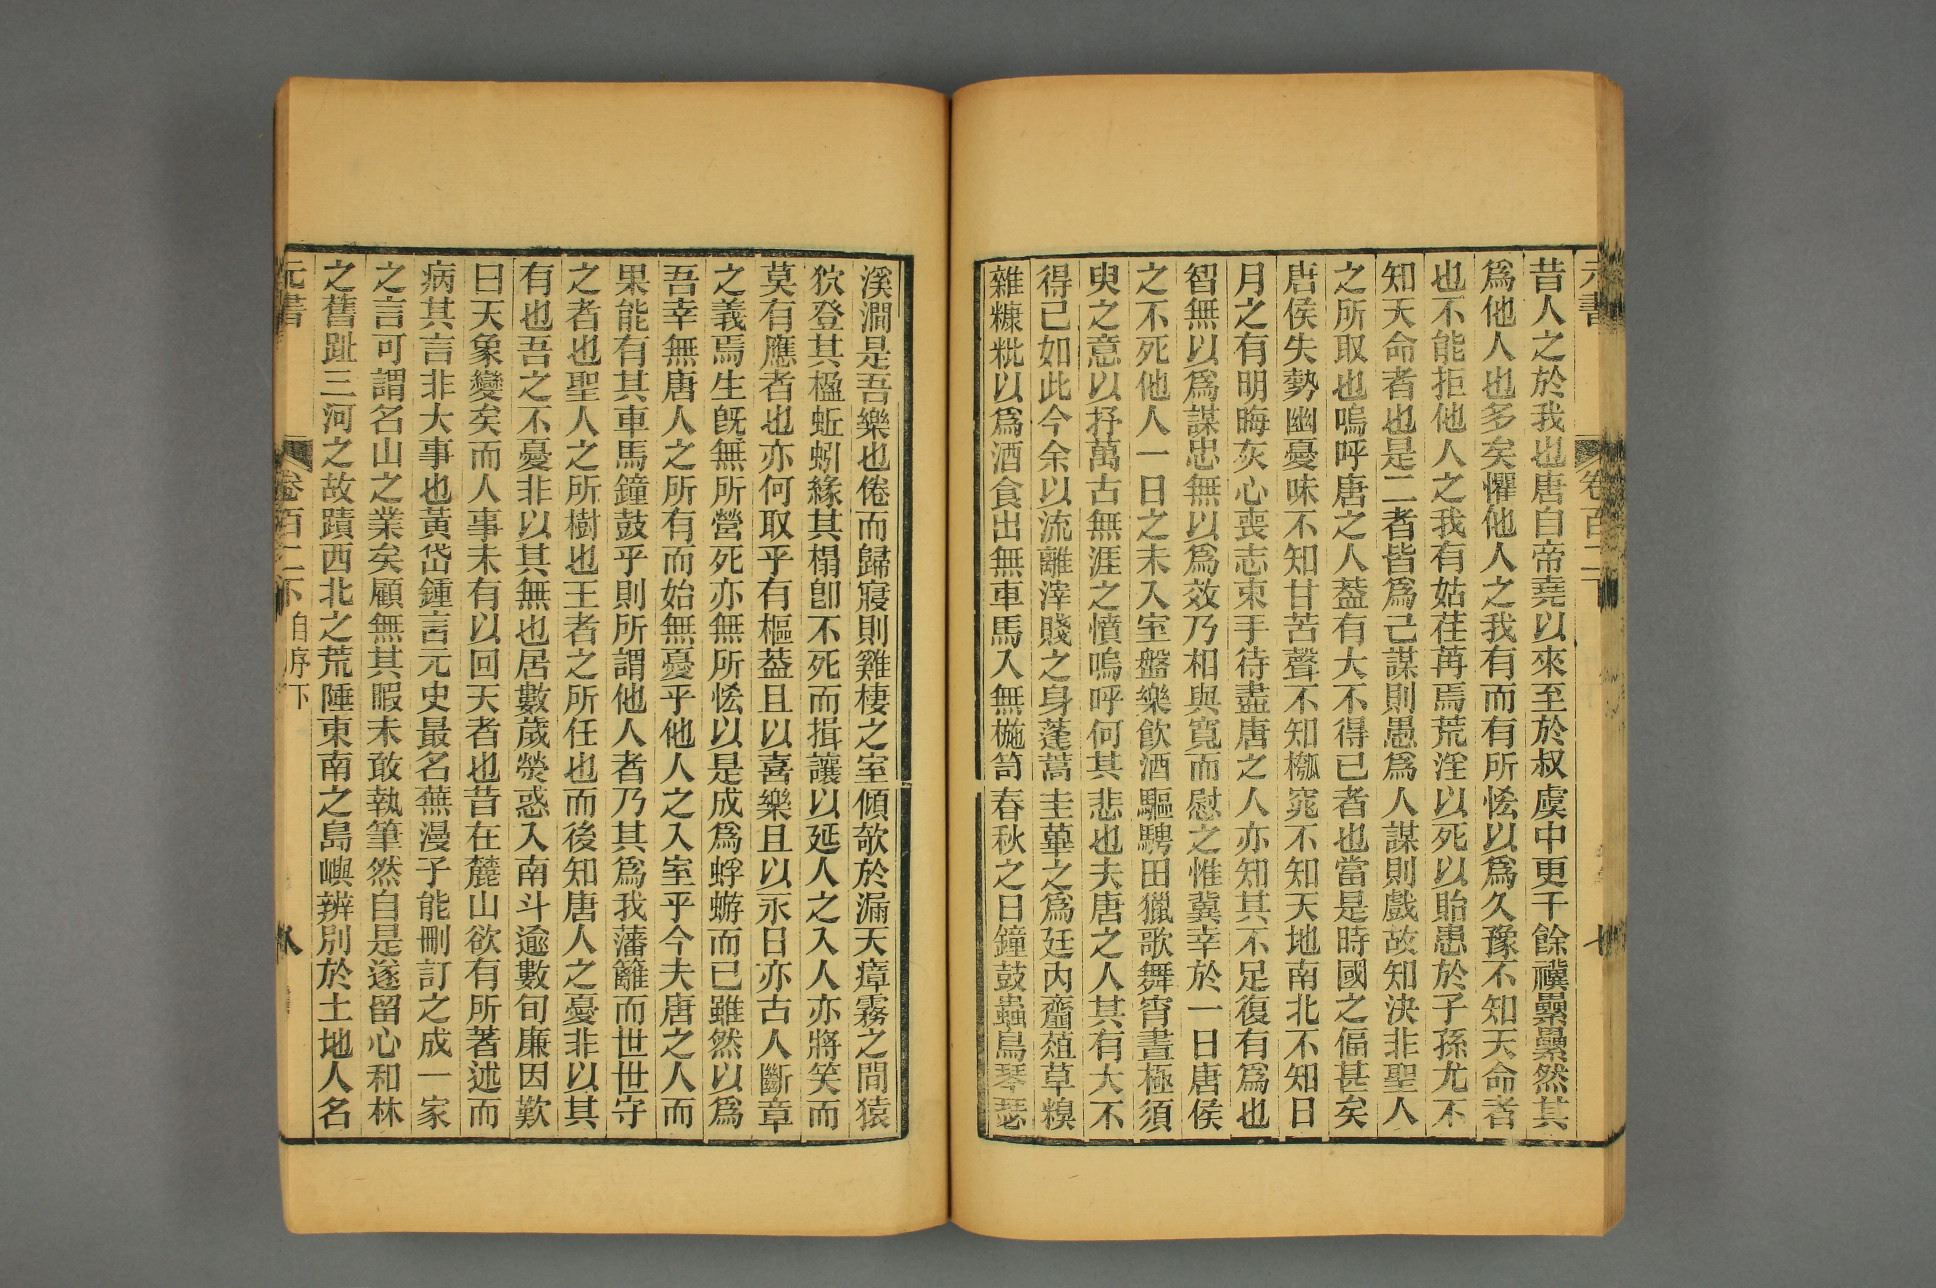 元書
卷百二下
七
昔人之於我也唐自帝堯以來至於叔虞中更千餘禩纍纍然其
爲他人也多矣懼他人之我有而有所恡以爲久豫不知天命者
也不能拒他人之我有姑荏苒焉荒淫以死以貽患於子孫尤不
知天命者也是二者皆爲己謀則愚爲人謀則戲故知決非聖人
之所取也嗚呼唐之人蓋有大不得已者也當是時國之偪甚矣
唐侯失勢幽憂味不知甘苦聲不知㧓窕不知天地南北不知日
月之有明晦灰心喪志束手待盡唐之人亦知其不足復有爲也
智無以爲謀忠無以爲效乃相與寬而慰之惟冀幸於一日唐侯
之不死他人一日之未入室盤樂飲酒驅騁田獵歌舞宵晝極須
臾之意以抒萬古無涯之憤嗚呼何其悲也夫唐之人其有大不
得已如此今余以流離滓賤之身蓬蒿圭蓽之爲廷內齏葅草糗
雜糠粃以爲酒食出無車馬入無椸笥春秋之日鐘鼓蟲鳥琴瑟
溪澗是吾樂也倦而歸寢則雞棲之室傾欹於漏天瘴霧之間猿
狖登其楹蚯蚓緣其榻卽不死而揖讓以延人之入人亦將笑而
莫有應者也亦何取乎有樞蓋且以喜樂且以永日亦古人斷章
之義焉生旣無所營死亦無所恡以是成爲蜉蝣而已雖然以爲
吾幸無唐人之所有而始無憂乎他人之入室乎今夫唐之人而
果能有其車馬鐘鼓乎則所謂他人者乃其爲我藩籬而世世守
之者也聖人之所樹也王者之所任也而後知唐人之憂非以其
有也吾之不憂非以其無也居數歲熒惑入南斗逾數旬廉因歎
曰天象變矣而人事未有以回天者也昔在麓山欲有所著述而
病其言非大事也黃岱鍾言元史最名蕪漫子能刪訂之成一家
之言可謂名山之業矣顧無其暇未敢執筆然自是遂留心和林
之舊趾三河之故蹟西北之荒陲東南之島嶼辨別於土地人名
元書
卷百二下 自序下
八